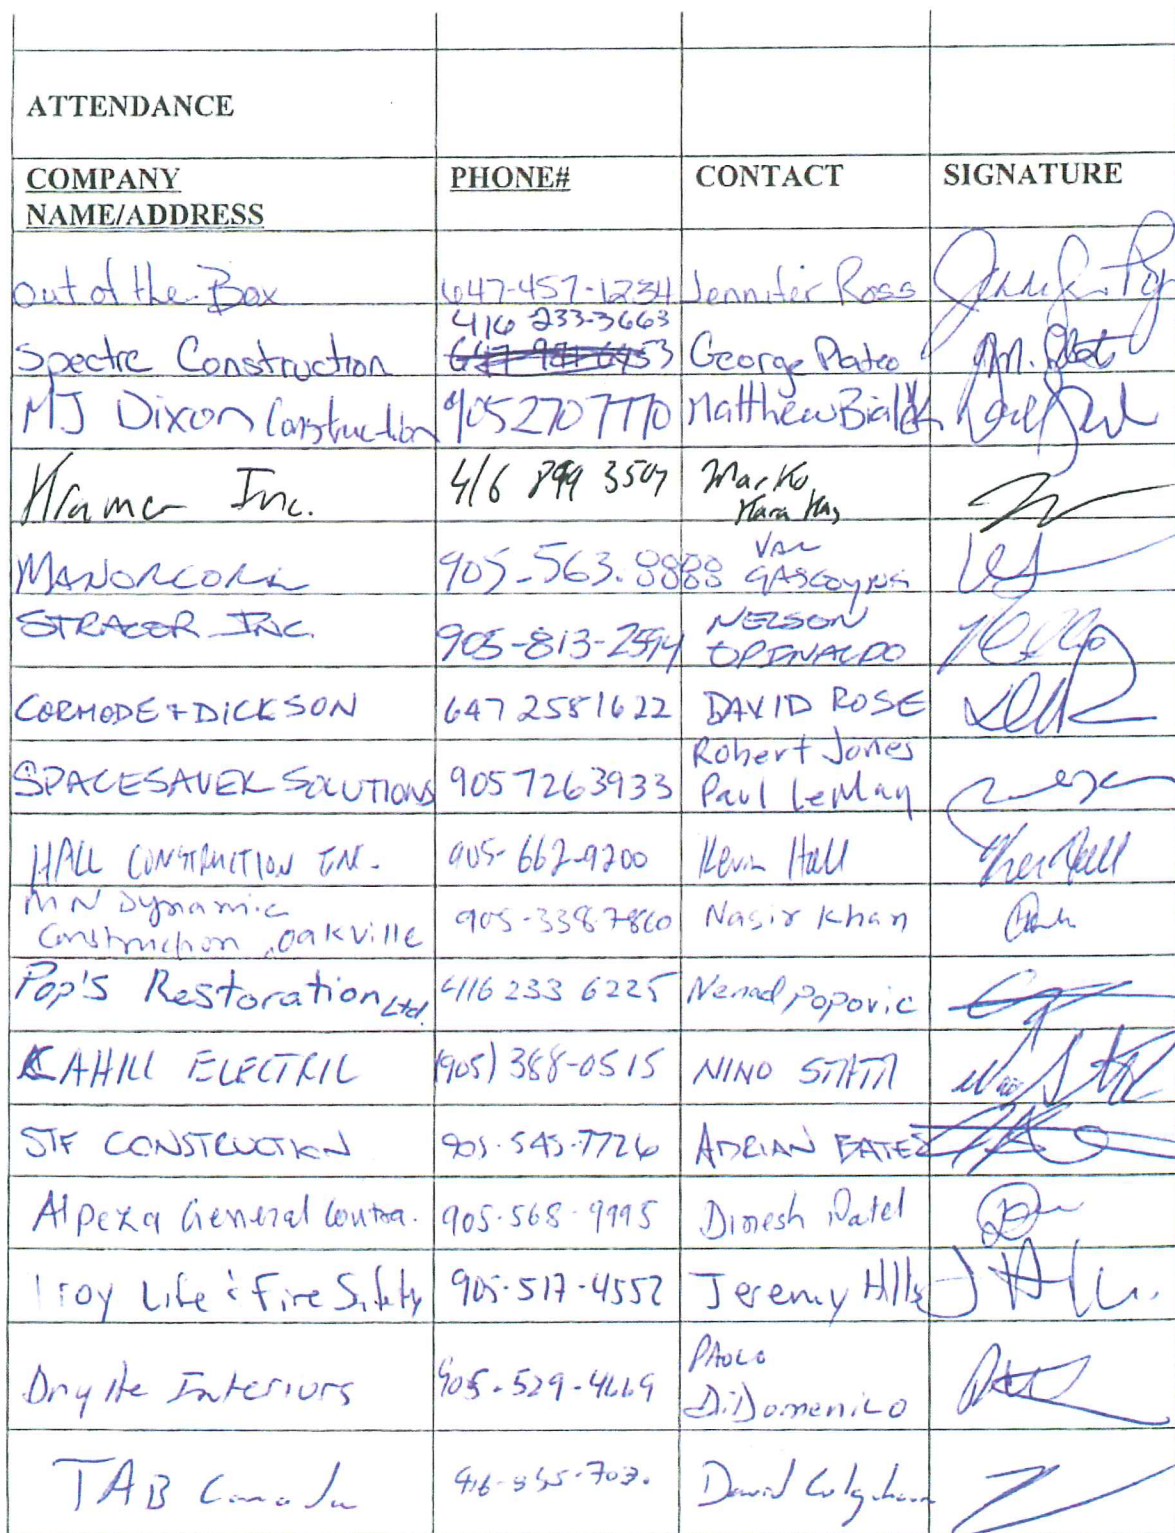 ATTENDANCE
COMPANY NAME/ADDRESS PHONE# CONTACT SIGNATURE
Out of the Box 647-457-1234 Jennifer Ross
416 233-3663
Spectre Construction George Plateo
MJ Dixon Construction 905 270 7770 Matthew
Kramer Inc. 416 899 3507 Marko
MANORCORE 905-563-8888 VAL GASCOYNE
STRACOR INC. 905-813-2594 NELSON
CORMODE & DICKSON 647 258 1622 DAVID ROSE
SPACESAVER SOLUTIONS 905 726 3933 Robert Jones
Paul LeMay
HALL CONSTRUCTION INC. 905-662-9200 Kevin Hall
MN Dynamic
Construction, Oakville 905-338-7860 Nasir Khan
Pop's Restoration Ltd. 416 233 6225 Nenad Popovic
CAHILL ELECTRIC (905) 388-0515 NINO
STF CONSTRUCTION 905-545-7726 ADRIAN BATES
Alpeza General Contra. 905-568-9995 Dimesh Patel
Troy Life & Fire Safety 905-517-4552 Jeremy Hills
Dryite Interiors 905-529-4669 PAOLO
DiDomenico
TAB Canada David